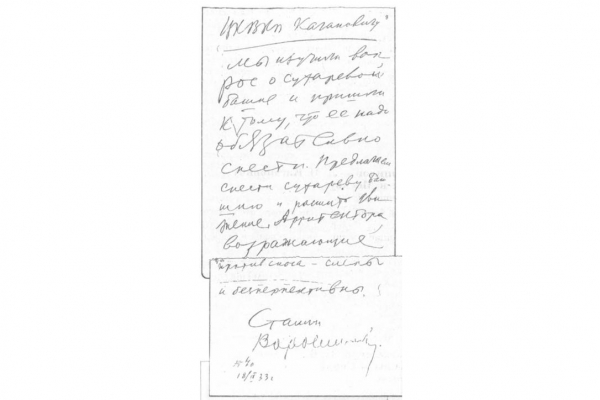 ЦК ВКП Кагановичу
Мы изучили воп
рос о сухаревой
башне и пришли
к тому, что ее надо
обязательно
снести. Предлагаем
снести сухареву ба
шню и расшить дви
жение. Архитектора,
возражающие
против сноса – слепы
и бесперспективны.
Сталин
Ворошилов.
33 г.